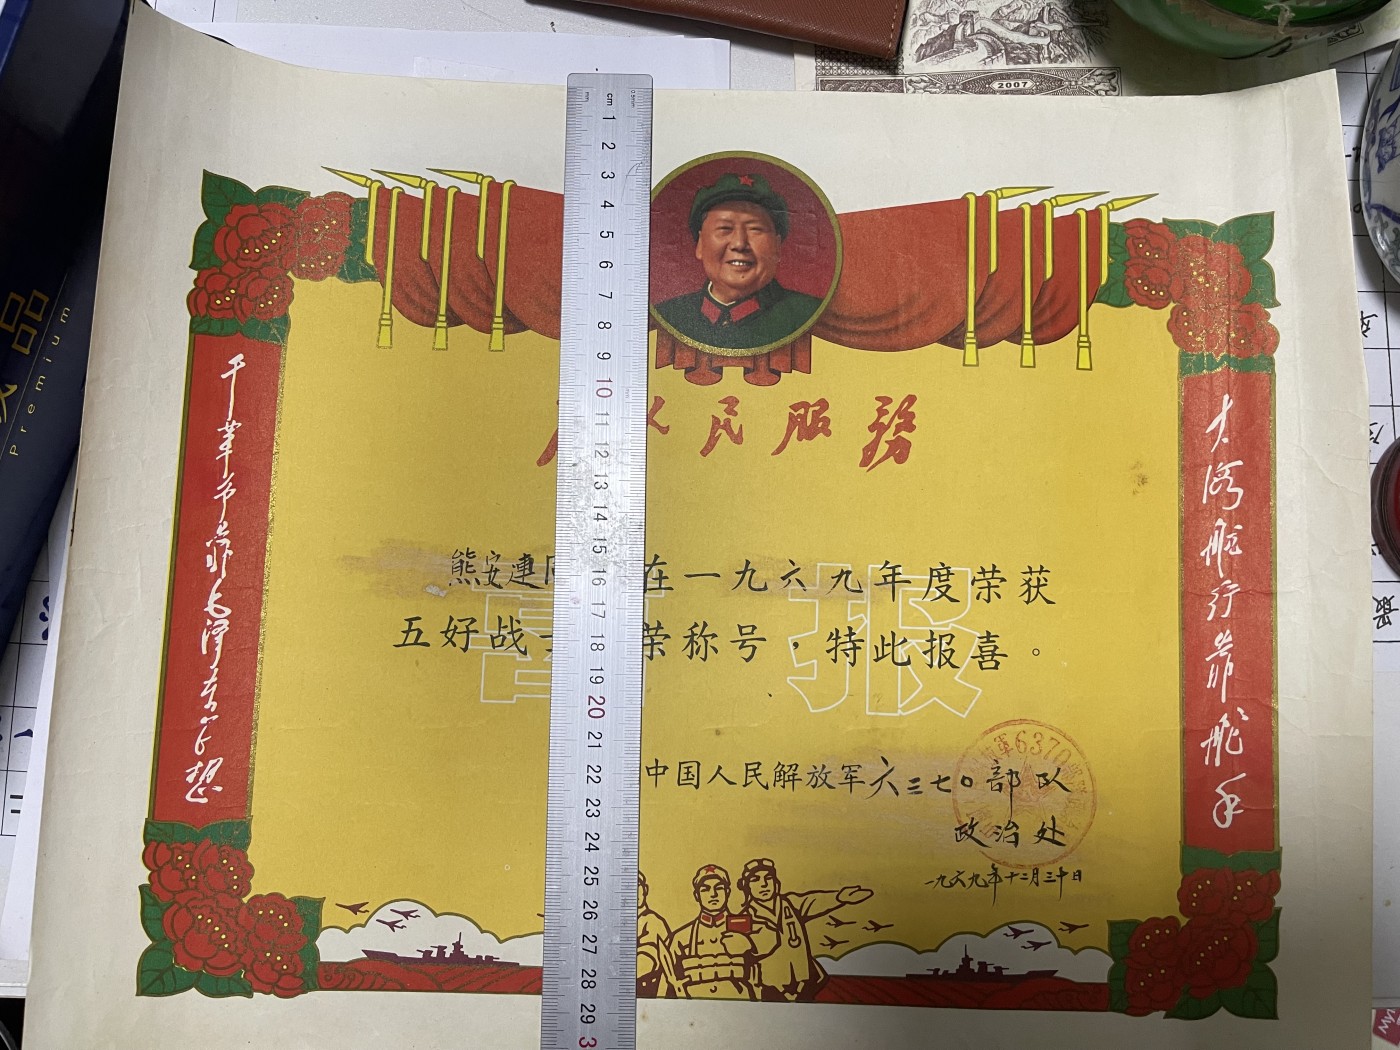 人民服務
大海航行靠舵手
干革命靠毛泽东思想
喜报
熊安連同 在一九六九年度荣获
五好战士 荣称号，特此报喜。
中国人民解放军六三七〇部队
政治处
一九六九年十二月三十日
6370
cm
mm
0.5mm
1
2
3
4
5
6
7
8
9
10
11
12
13
14
15
16
17
18
19
20
21
22
23
24
25
26
27
28
29
2007
品
Premium
最